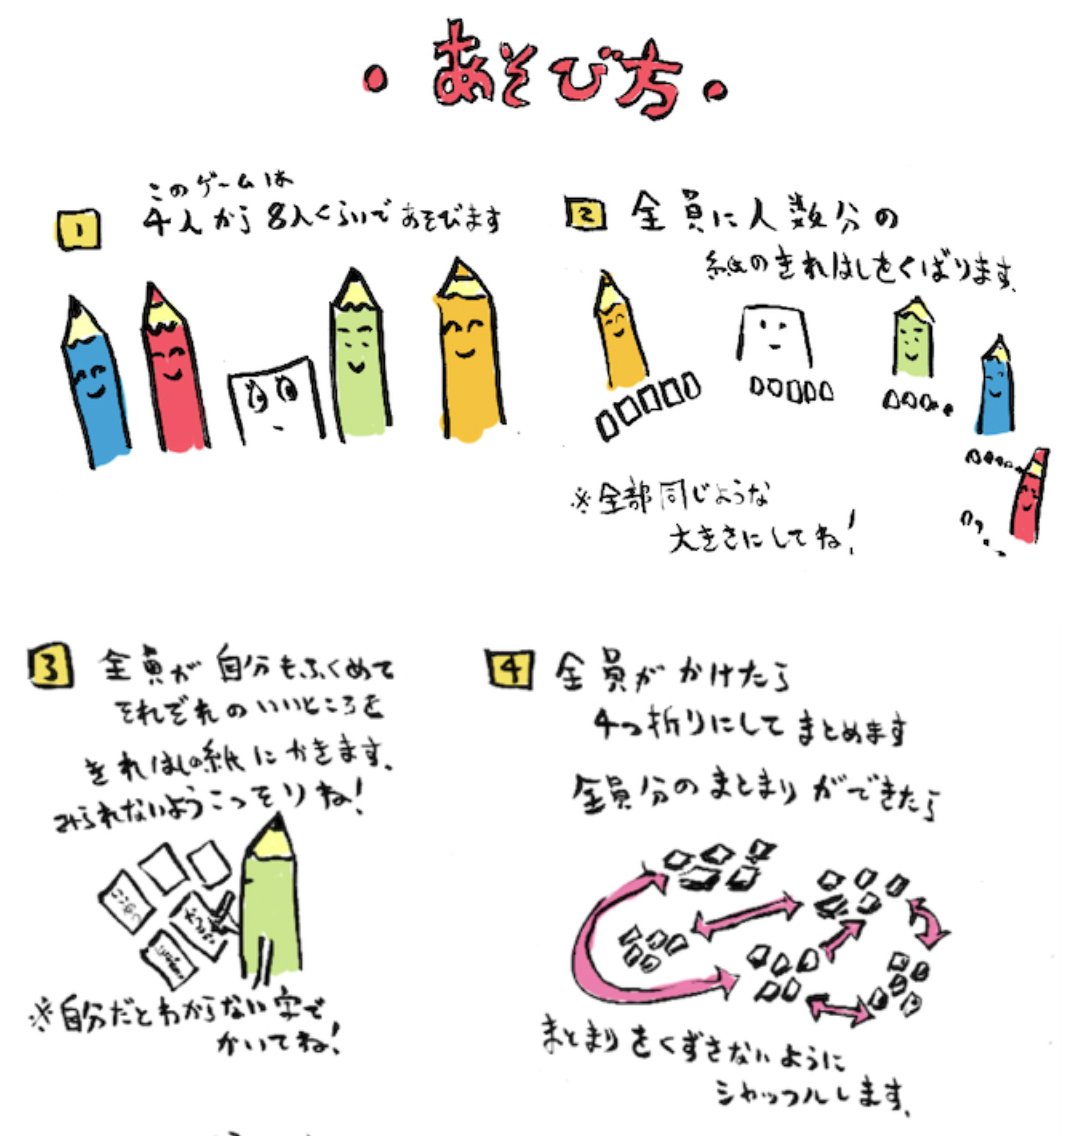 ・あそび方・
1
このゲームは
4人から8人くらいであそびます
2
全員に人数分の
紙のきれはしをくばります。
※全部同じような
大きさにしてね!
3
全員が自分もふくめて
それぞれのいいところを
きれはしの紙にかきます。
みられないようこっそりね!
※自分だとわからない字で
かいてね!
4
全員がかけたら
4つ折りにしてまとめます
全員分のまとまりができたら
まとまりをくずさないように
シャッフルします。